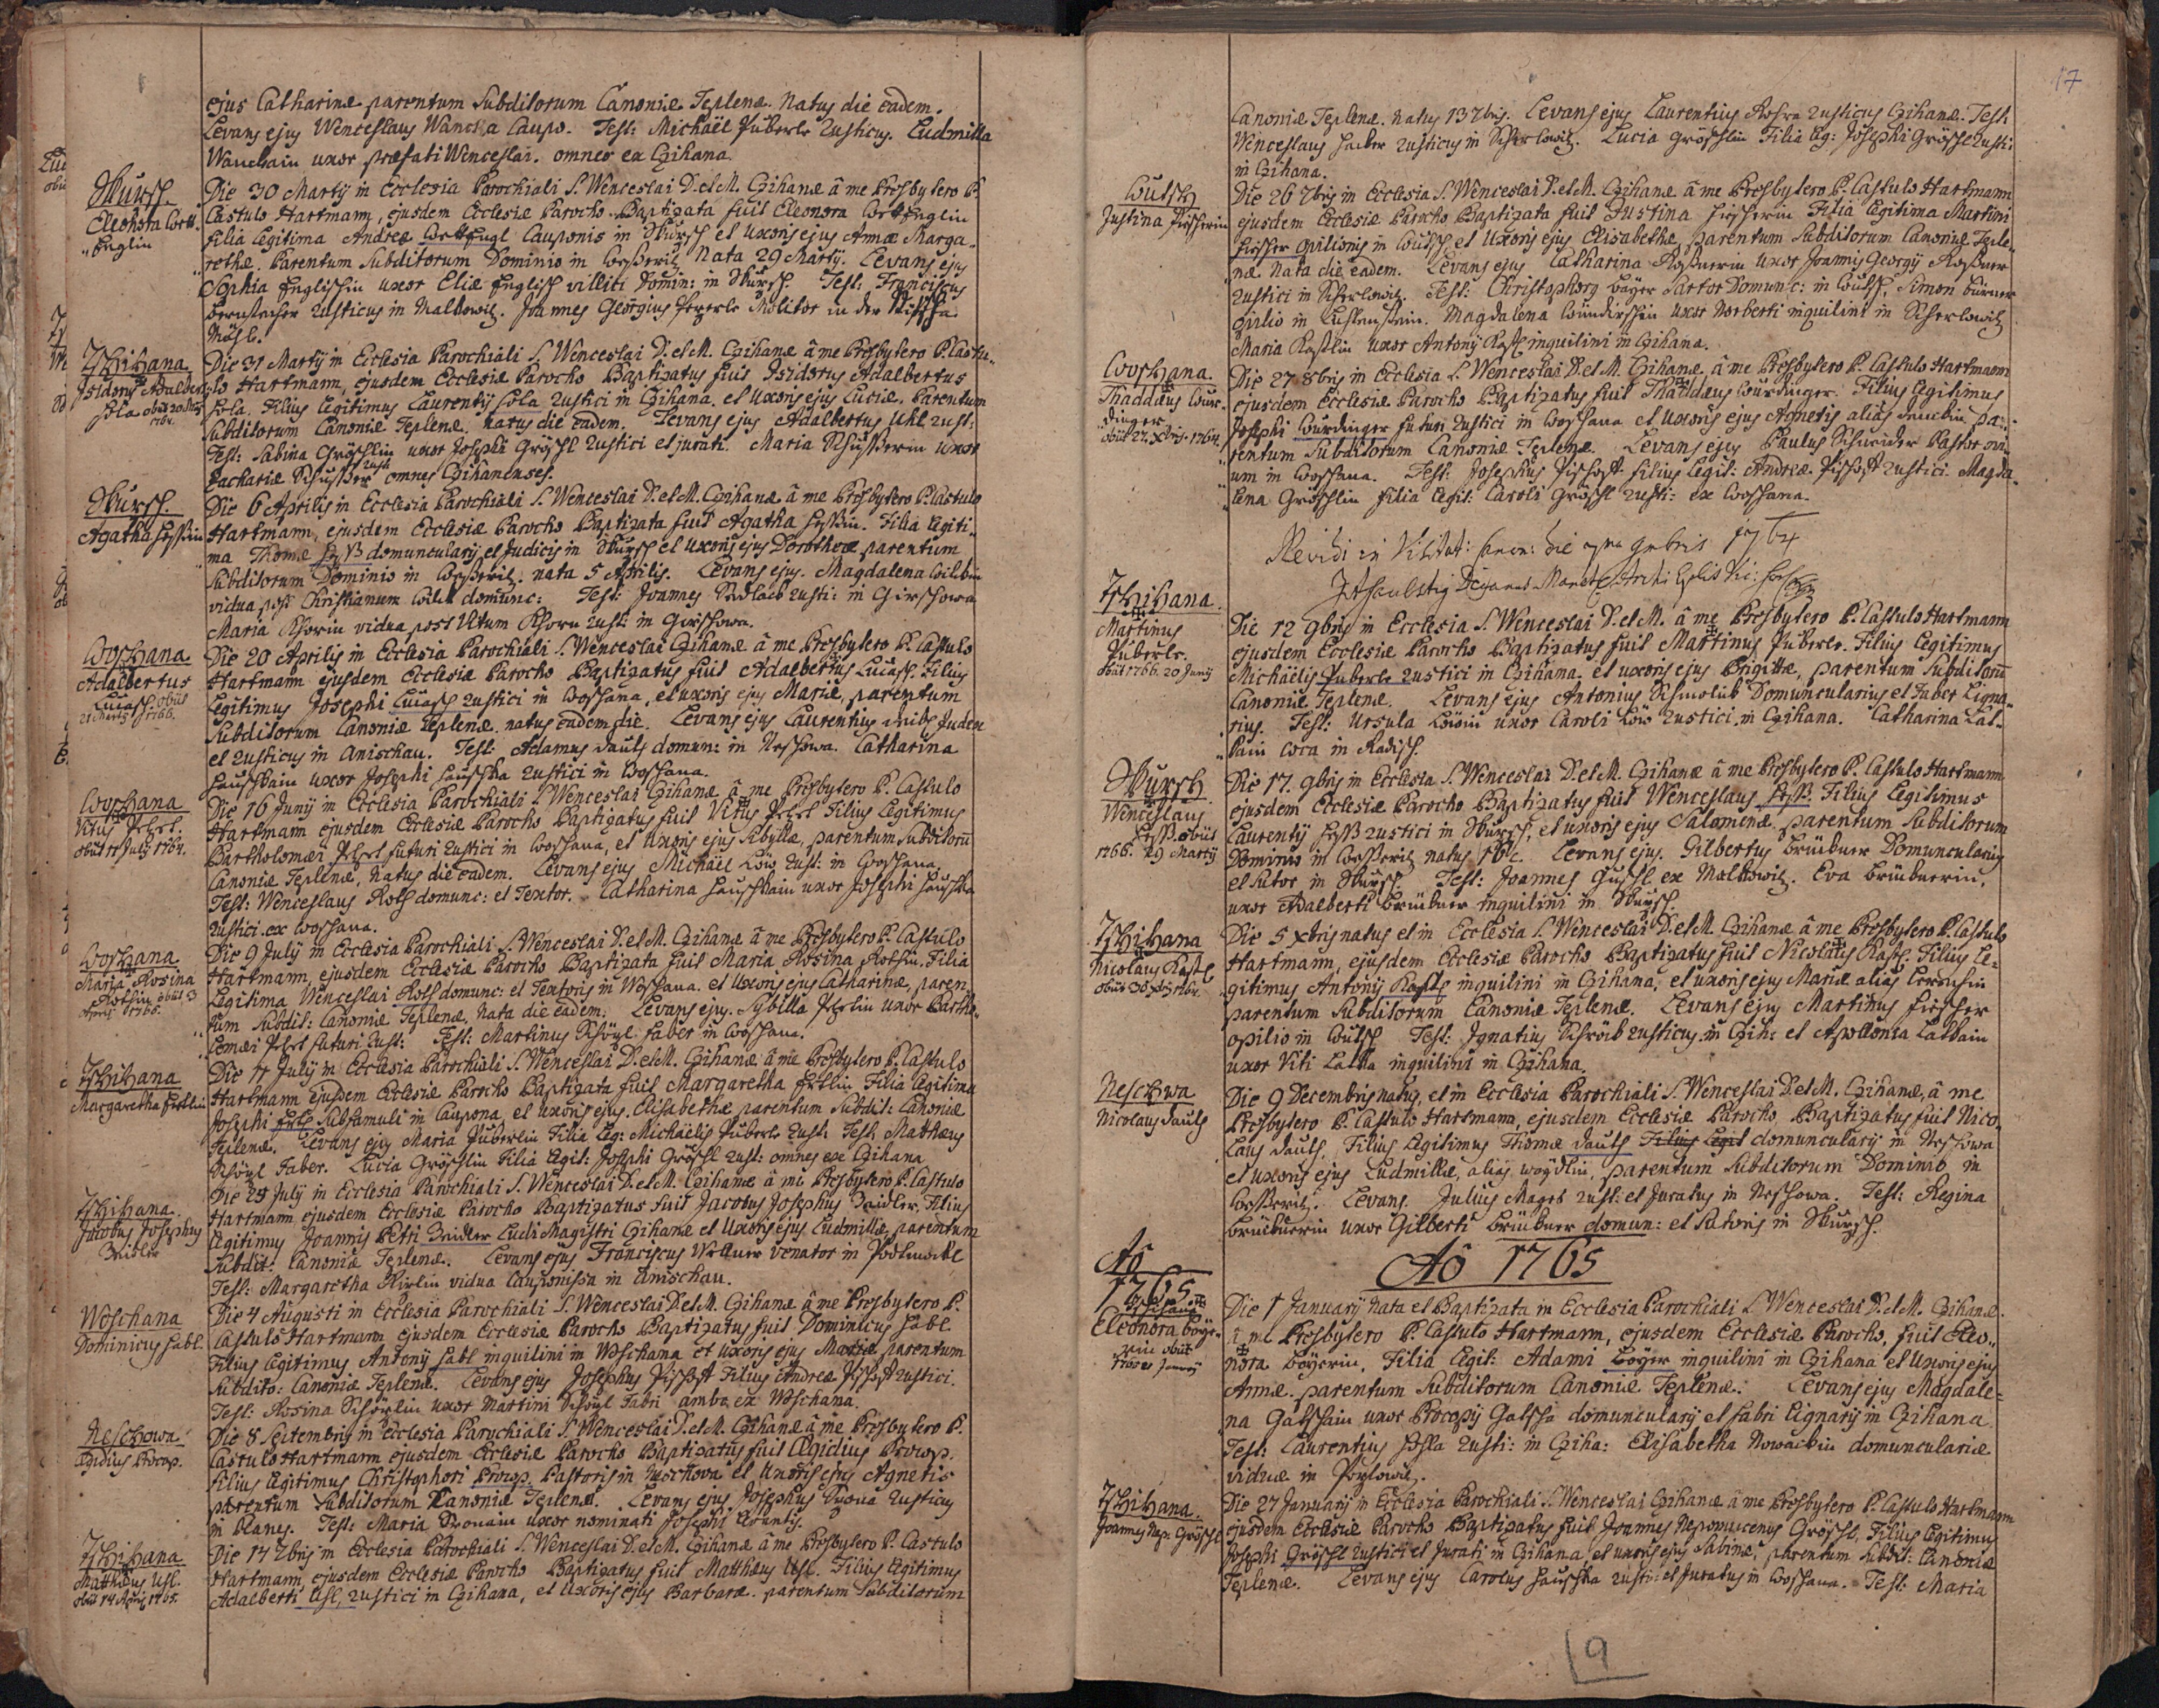 ejus Catharinæ parentum Subditorum Canoniæ Teplenæ. Natus die eadem.
Levans ejus Wenceslaus Wancka Caupo. Test: Michaël Püberle Rusticus. Ludmilla
Wanckain uxor præfati Wenceslai. omnes ex Czihana.
Skursch.
Eleonora
Englin
Die 30 Martij in Ecclesia Parochiali S. Wenceslai D. et M. Czihanæ â me Presbytero P.
Castulo Hartmann, ejusdem Ecclesiæ Parocho Baptizata fuit Eleonora
filia legitima Andreæ Cauponis in Skursch et Uxoris ejus Annæ Marga-
rethæ. Parentum Subditorum Dominio in Weseritz. Nata 29 Martij. Levans ejus
Sophia Englischin uxor Eliæ Englisch villici Domin: in Skursch. Test: Franciscus
Rusticus in Malkowitz. Joannes Georgius Molitor in der
Mühl.
Tschihana.
Isidorus Adalbertus
Hola obiit
1764.
Die 31 Martij in Ecclesia Parochiali S. Wenceslai D. et M. Czihanæ â me Presbytero P. Castu-
lo Hartmann, ejusdem Ecclesiæ Parocho Baptizatus fuit Isidorus Adalbertus
Hola. Filius legitimus Laurentij Hola Rustici in Czihana, et Uxoris ejus Luciæ. Parentum
Subditorum Canoniæ Teplenæ. natus die eadem. Levans ejus Adalbertus Uhl Rust:
Test: Sabina Gröschlin uxor Josephi Gröschl Rustici et jurati. Maria Schusserin uxor
Zachariæ Schusser Rusti omnes Czihanenses.
Skursch.
Agatha Hessin
Die 6 Aprilis in Ecclesia Parochiali S. Wenceslai D. et M. Czihanæ â me Presbytero P. Castulo
Hartmann, ejusdem Ecclesiæ Parocho Baptizata fuit Agatha Hessin. Filia legiti-
ma Thomæ Heß domuncularij et Judicis in Skursch et Uxoris ejus Dorotheæ parentum
Subditorum Dominio in Weseritz. nata 5 Aprilis. Levans ejus. Magdalena
vidua post Christianum domunc: Test: Joannes Sedlack Rusti: in Girschowa
Maria vidua post Vitum Rust: in Girschowa.
Woschana
Adalbertus
Lucasch. obiit
21 Martij 1766.
Die 20 Aprilis in Ecclesia Parochiali S. Wenceslai Czihanæ â me Presbytero P. Castulo
Hartmann ejusdem Ecclesiæ Parocho Baptizatus fuit Adalbertus Lucasch. Filius
legitimus Josephi Lucasch Rustici in Woschana, et uxoris ejus Mariæ, parentum
Subditorum Canoniæ Teplenæ. natus eadem die. Levans ejus Laurentius Judex
et Rusticus in Amischau. Test: Adamus Dauls domun: in Neschowa. Catharina
Hauschkain uxor Josephi Hauschka Rustici in Woschana.
Woschana
Vitus Petzet.
obiit 18 July 1764.
Die 16 Junij in Ecclesia Parochiali S. Wenceslai Czihanæ â me Presbytero P. Castulo
Hartmann ejusdem Ecclesiæ Parocho Baptizatus fuit Vitus Filius legitimus
Bartholomæi futuri Rustici in Woschana, et Uxoris ejus Sibyllæ, parentum Subditorū
Canoniæ Teplenæ, natus die eadem. Levans ejus Michaël Löw Rust: in Woschana.
Test: Wenceslaus Roth domunc: et Textor. Catharina Hauschkain uxor Josephi Hauschka
Rustici ex Woschana.
Woschana
Maria Rosina
Rothin obiit 3
1765.
Die 9 July in Ecclesia Parochiali S. Wenceslai D. et M. Czihanæ â me Presbytero P. Castulo
Hartmann, ejusdem Ecclesiæ Parocho Baptizata fuit Maria Rosina Rothin. Filia
legitima Wenceslai Roth domunc: et Textoris in Woschana. et Uxoris ejus Catharinæ, paren-
tum Subdit: Canoniæ Teplenæ, nata die eadem. Levans ejus. Sybilla uxor Bartho-
lomæi futuri Rust: Test: Martinus Schöyl faber in Woschana.
Tschihana
Margaretha
Die July in Ecclesia Parochiali S. Wenceslai D. et M. Czihanæ â me Presbytero P. Castulo
Hartmann ejusdem Ecclesiæ Parocho Baptizata fuit Margaretha Filia legitima
Josephi Subfamuli in Caupona, et uxoris ejus. Elisabethæ parentum Subdit: Canoniæ
Teplenæ. Levans ejus Maria Püberlin Filia leg: Michaëlis Püberle Rust: Test: Mathæus
Schöyl Faber. Lucia Gröschlin Filia legit: Josephi Gröschl Rust: omnes ex Czihana
Tschihana.
Jacobus Josephus
Zeidler
Die July in Ecclesia Parochiali S. Wenceslai D. et M. Czihanæ â me Presbytero P. Castulo
Hartmann ejusdem Ecclesiæ Parocho Baptizatus fuit Jacobus Josephus Zeidler. Filius
legitimus Joannis Petri Zeidler Ludi Magistri Czihanæ et Uxoris ejus Ludmillæ, parentum
Subdit: Canoniæ Teplenæ. Levans ejus Franciscus Wellner venator in
Test: Margaretha vidua Cauponissa in Amischau.
Woschana
Dominicus Habl.
Die 4 Augusti in Ecclesia Parochiali S. Wenceslai D. et M. Czihanæ â me Presbytero P.
Castulo Hartmann ejusdem Ecclesiæ Parocho Baptizatus fuit Dominicus Habl.
Filius legitimus Antonij Habl inquilini in Woschana et uxoris ejus Mariæ parentum
Subdito: Canoniæ Teplenæ. Levans ejus Josephus Filius Andreæ Rustici.
Test: Rosina uxor Martini Schöyl Fabri ambo ex Woschana.
Neschowa
Ægidius Prcop.
Die 8 Septembris in Ecclesia Parochiali S. Wenceslai D. et M. Czihanæ â me Presbytero P.
Castulo Hartmann ejusdem Ecclesiæ Parocho Baptizatus fuit Ægidius
filius legitimus Christophori Pastoris in Neschowa et Uxoris ejus Agnetis
parentum Subditorum Canoniæ Teplenæ. Levans ejus Josephus Rusticus
in Planes. Test: Maria uxor nominati Josephi
Tschihana
Matthæus Uhl.
obiit 14 1765.
Die 14 7bris in Ecclesia Parochiali S. Wenceslai D. et M. Czihanæ â me Presbytero P. Castulo
Hartmann, ejusdem Ecclesiæ Parocho Baptizatus fuit Matthæus Uhl. Filius legitimus
Adalberti Uhl, Rustici in Czihana, et Uxoris ejus Barbaræ. parentum Subditorum
17
Canoniæ Teplenæ. natus 13 7bris. Levans ejus Laurentius Rusticus Czihanæ. Test:
Wenceslaus Hacker Rusticus in Scherlowitz. Lucia Gröschlin Filia leg: Josephi Gröschl Rusti:
in Czihana.
Wutsch
Justina Fischerin
Die 26 7bris in Ecclesia S. Wenceslai D. et M. Czihanæ â me Presbytero P. Castulo Hartmann
ejusdem Ecclesiæ Parocho Baptizata fuit Justina Fischerin Filia legitima Martini
Fischer Opilionis in Wutsch, et Uxoris ejus Elisabethæ, parentum Subditorum Canoniæ Teple-
næ. Nata die eadem. Levans ejus Catharina uxor Joannis Georgij
Rustici in Scherlowitz. Test: Christophorus Bayer Sartor Domunc: in Wutsch, Simon
Opilio in Magdalena uxor Norberti inquilini in Scherlowitz
Maria Kastlin uxor Antonij Kastl inquilini in Czihana.
Woschana.
Thaddæus Wur-
dinger.
obiit 27. Xbris. 1764.
Die 27 8bris in Ecclesia S. Wenceslai D. et M. Czihanæ â me Presbytero P. Castulo Hartmann
ejusdem Ecclesiæ Parocho Baptizatus fuit Thaddæus Wurdinger. Filius legitimus
Josephi Wurdinger futuri Rustici in Woschana et Uxoris ejus Agnetis aliàs pa-
rentum Subditorum Canoniæ Teplenæ. Levans ejus Paulus Schneider Pastor ovi-
um in Woschana. Test: Josephus filius legit: Andreæ Rustici. Magda-
lena Gröschlin filia legit: Caroli Gröschl Rusti: ex Woschana.
Revidi in Visitat: Canon: die 9bris 1764
Tschihana.
Martinus
Püberle.
obiit 1766. 20 Junij
Die 12 9bris in Ecclesia S. Wenceslai D. et M. â me Presbytero P. Castulo Hartmann
ejusdem Ecclesiæ Parocho Baptizatus fuit Martinus Püberle. Filius legitimus
Michaëlis Püberle Rustici in Czihana. et uxoris ejus Brigittæ, parentum Subditorū
Canoniæ Teplenæ. Levans ejus Antonius Schmolick Domuncularius et Faber Ligna-
rius. Test: Ursula Löwin uxor Caroli Löw Rustici in Czihana. Catharina Lat-
kain coca in Radisch.
Skursch
Wenceslaus
Heß obiit
1766. 29 Martij
Die 17. 9bris in Ecclesia S. Wenceslai D. et M. Czihanæ â me Presbytero P. Castulo Hartmann
ejusdem Ecclesiæ Parocho Baptizatus fuit Wenceslaus Heß. Filius legitimus
Laurentij Heß Rustici in Skursch, et uxoris ejus Salomenæ parentum Subditorum
Dominio in Weseritz natus Levans ejus. Gilbertus Brückner Domuncularius
et Sutor in Skursch. Test: Joannes ex Malkowitz. Eva Brücknerin,
uxor Adalberti Brückner inquilini in Skursch.
Tschihana
Nicolaus Kastl
obiit 30 Xbris 1764.
Die 5 Xbris natus et in Ecclesia S. Wenceslai D. et M. Czihanæ â me Presbytero P. Castulo
Hartmann, ejusdem Ecclesiæ Parocho Baptizatus fuit Nicolaus Kastl. Filius le-
gitimus Antonij Kastl inquilini in Czihana, et uxoris ejus Mariæ aliàs
parentum Subditorum Canoniæ Teplenæ. Levans ejus Martinus Fischer
opilio in Wutsch Test: Ignatius Schreib Rusticus in Czih: et Apollonia Latkain
uxor Viti Latka inquilini in Czihana.
Neschwa
Nicolaus Dauls
Die 9 Decembris natus, et in Ecclesia Parochiali S. Wenceslai D. et M. Czihanæ, â me
Presbytero P. Castulo Hartmann, ejusdem Ecclesiæ Parocho Baptizatus fuit Nico-
laus Dauls. Filius legitimus Thomæ Dauls Filius legit domuncularij in Neschowa
et uxoris ejus Ludmillæ, aliàs Woydlin, parentum Subditorum Dominio in
Weseritz. Levans. Julius Mages Rust: et Juratus in Neschowa. Test: Regina
Brücknerin uxor Gilberti Brückner domun: et Sutoris in Skursch.
Aô 1765
Aô
1765
Tschihana
Eleonora Bayer-
rin obiit
1765 21 Januarij
Die 1 Januarij nata et Baptizata in Ecclesia Parochiali S. Wenceslai D. et M. Czihanæ.
â me Presbytero P. Castulo Hartmann, ejusdem Ecclesiæ Parocho, fuit Eleo-
nora Bayerin, Filia legit: Adami Bayer inquilini in Czihana et Uxoris ejus
Annæ. parentum Subditorum Canoniæ Teplenæ. Levans ejus Magdale-
na Gatschain uxor Procopij Gatscha domuncularij et Fabri Lignarij in Czihana
Test: Laurentius Hola Rusti: in Cziha: Elisabetha Nowackin domunculariæ
viduæ in
Tschihana.
Joannes Nep: Gröschl
Die 27 Januarij in Ecclesia Parochiali S. Wenceslai Czihanæ â me Presbytero P. Castulo Hartmann
ejusdem Ecclesiæ Parocho Baptizatus fuit Joannes Nepomucenus Gröschl, Filius legitimus
Josephi Gröschl Rustici et Jurati in Czihana, et uxoris ejus Sabinæ, parentum Subdit: Canoniæ
Teplenæ. Levans ejus Carolus Hauschka Rusti: et Juratus in Woschana. Test: Maria
19